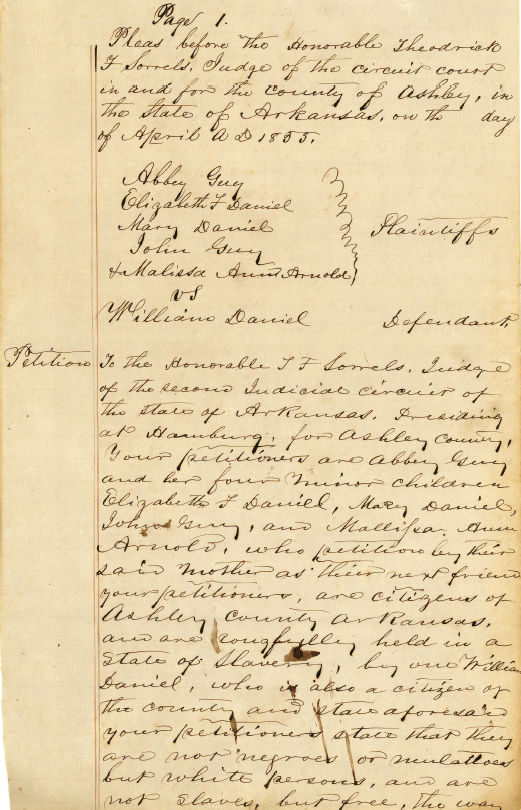 Page 1.
Pleas before the Honorable Theodrick
F Sorrels, Judge of the circuit court
in and for the county of Ashley, in
the State of Arkansas, on th day
of April A D 1855.
Abbey Guy
Elizabeth F Daniel
Mary Daniel
John Guy
& Malissa Ann Arnold,
Plaintiffs
vs
William Daniel Defendant,
Petition
To the Honorable T F Sorrels, Judge
of the second Judicial circuit of
the state of Arkansas, Presiding
at Hamburg, for Ashley county,
Your petitioners are Abbey Guy
and her four minor children
Elizabeth F Daniel, Mary Daniel,
John Guy, and Mallissa Ann
Arnold, who petition by their
said mother as their next friend
your petitioners, are citizens of
Ashley county Arkansas,
and are rongfully held in a
State of Slavery, by one William
Daniel, who is also a citizen of
the county and state aforesaid
your petitioners state that they
are not negroes or mulattoes
but white persons, and are
not slaves, but free, the way